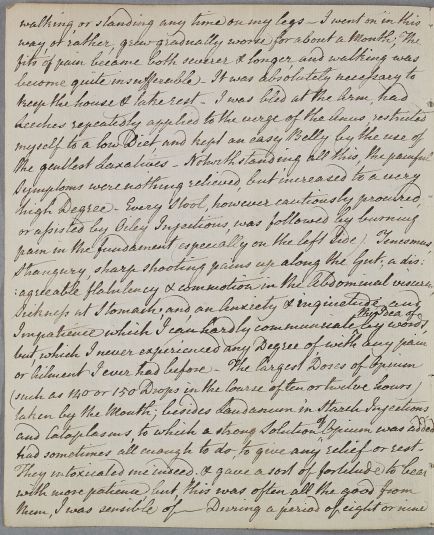 walking or standing any time on my legs - I went on in this
way or rather, grew gradually worse for about a Month, The
fits of pain became both severer & longer, and walking was
become quite insufferable - It was absolutely necessary to
keep the house & take rest - I was bled at the arm, had
Leeches repeatedly applied to the verge of the anus, restricted
myself to a low Diet and kept an easy Belly by the use of
the gentlest Laxatives - Notwithstanding all this, the painful
Symptoms were nothing relieved but increased to a very
high Degree - Every Stool, however cautiously procured,
or assisted by Oiley Injections, was followed by burning
pain in the fundament (especially on the left Side), Tenesmus,
Strangury, sharp shooting pains up along the Gut, a dis:
:agreeable flatulency & commotion in the Abdominal viscera
Sickness at Stomach and an Anxiety & Inquietude and
Impatience which I can hardly communicate the Idea of by words,
but which I never experienced any Degree of with any pain
or ailment I ever had before - The largest Doses of Opium
(such as 140 or 150 Drops in the Course of ten or twelve hours)
taken by the Mouth; besides Laudanum in Starch Injections
and Cataplasms to which a strong Solution of Opium was added
had sometimes all enough to do, to give any relief or rest -
They intoxicated me indeed, & gave a sort of fortitude to bear
with more patience but, this was often all the good from
them, I was sensible of - During a period of eight or nine